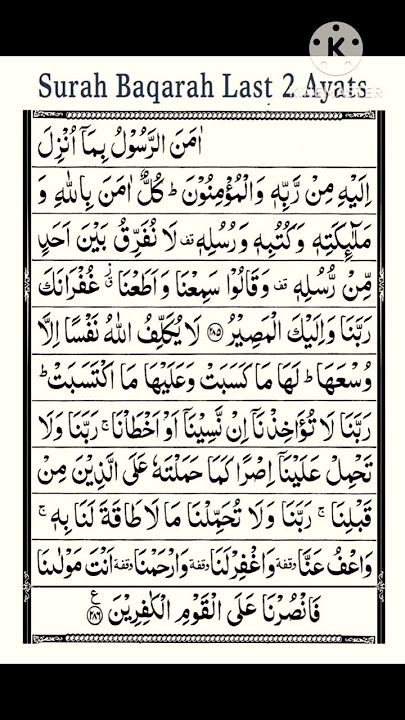 K
KINEMASTER
Surah Baqarah Last 2 Ayats
اٰمَنَ الرَّسُوْلُ بِمَاۤ اُنْزِلَ
اِلَيْهِ مِنْ رَّبِّهٖ وَالْمُؤْمِنُوْنَ ؕ كُلٌّ اٰمَنَ بِاللّٰهِ وَ
مَلٰٓئِكَتِهٖ وَكُتُبِهٖ وَرُسُلِهٖ قف لَا نُفَرِّقُ بَيْنَ اَحَدٍ
مِّنْ رُّسُلِهٖ قف وَقَالُوْا سَمِعْنَا وَاَطَعْنَا ق غُفْرَانَكَ
رَبَّنَا وَاِلَيْكَ الْمَصِيْرُ ۝۲۸۵ لَا يُكَلِّفُ اللّٰهُ نَفْسًا اِلَّا
وُسْعَهَا ؕ لَهَا مَا كَسَبَتْ وَعَلَيْهَا مَا اكْتَسَبَتْ ؕ
رَبَّنَا لَا تُؤَاخِذْنَاۤ اِنْ نَّسِيْنَاۤ اَوْ اَخْطَاْنَا ۚ رَبَّنَا وَلَا
تَحْمِلْ عَلَيْنَاۤ اِصْرًا كَمَا حَمَلْتَهٗ عَلَى الَّذِيْنَ مِنْ
قَبْلِنَا ۚ رَبَّنَا وَلَا تُحَمِّلْنَا مَا لَا طَاقَةَ لَنَا بِهٖ ۚ
وَاعْفُ عَنَّا وقفة وَاغْفِرْ لَنَا وقفة وَارْحَمْنَا وقفة اَنْتَ مَوْلٰىنَا
فَانْصُرْنَا عَلَى الْقَوْمِ الْكٰفِرِيْنَ ۝۲۸۶ ع